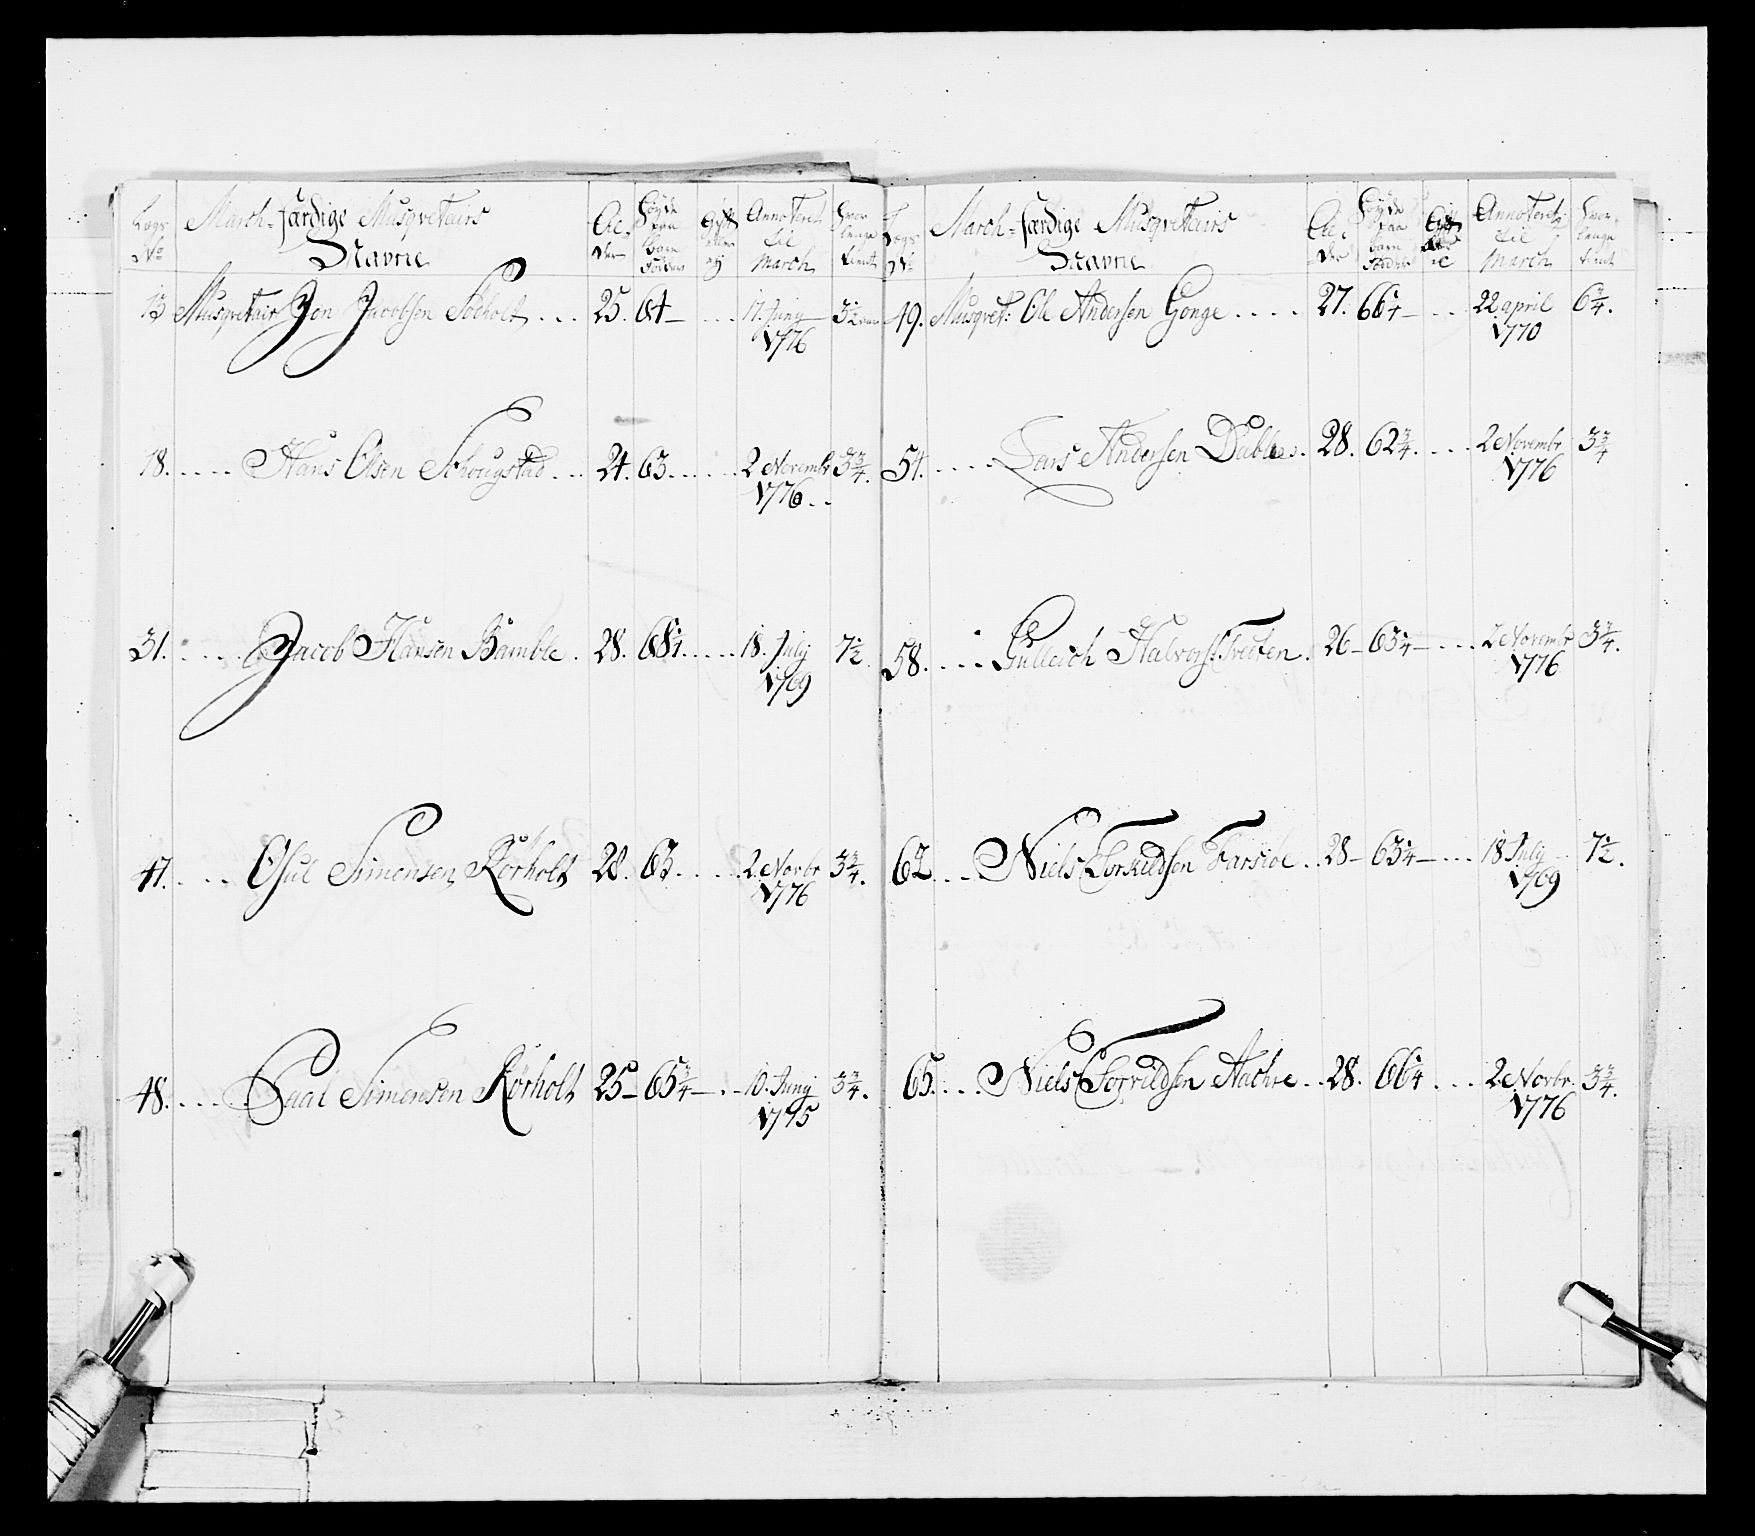 Lægs No
March-færdige Musqvetairs Navne
Al-der
Høyde paa bare Fødder
Gift eller ej
Annoteret til March
Hvor lenge tient
13 Musqvetair Jon Jacobsen Solholt ... 25. 64 — ... 17. Juny 1776 3½
18. .... Hans Olsen Schougstad ... 24. 63. .... 2 Novembr 1776 .. 3¾.
31. .... Jacob Hansen Bamble . 28. 68¼. .... 18. July 1769 7½
47. ... Osul Simonsen Rørholt 28. 63. .... 2. Novbr 1776 3¾.
48. ... Paal Simonsen Rørholt 25 — 65¾ — .. 10. Juny 1775 3¾.
Lægs No
March-færdige Musqvetairs Navne
Al-der
Høyde paa bare Fødder
Annoteret til March
Hvor lenge tient
49. Musqvet: Ole Andersen Gonge .... 27. 66¼ — ... 22 april 1770 6¾.
54. .... Lars Andersen Duble .. 28. 62¾. ... 2 Novembr 1776 3¾
58. .... Gulleich Halvors: Tveten . 26 — 63¼ — ... 2 Novembr 1776 3¾.
62. ... Niels Torkildsen Farsiøe .. 28 — 63¼ — ... 18 July 1769 7½.
65. ... Niels Torkildsen Aachre .. 28. 66¼ ... 2. Novbr. 1776 3¾.